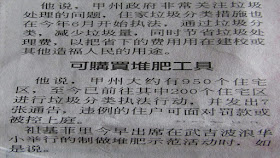 他说，甲州政府非常关注垃圾
处理的问题，住家垃圾分类措施也
在今年6月开始执法，通过垃圾分
类，减少垃圾量，同时节省垃圾处
理费，以把省下的费用用在建校或
其他造福人民的用途。
可購買堆肥工具
他说，甲州大约有950个住宅
区，至今已前往其中200个住宅区
进行垃圾分类执法行动，并发出7
张通告，违例的住户可面对罚款或
被控上庭。
祖基菲里今早出席在武吉波浪华
小举行的制做堆肥示范活动时，如
是说。